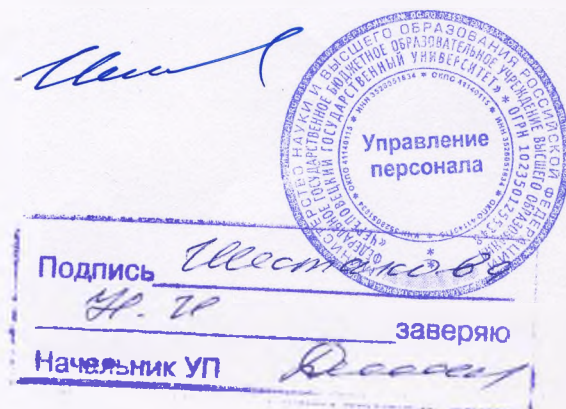 МИНИСТЕРСТВО НАУКИ И ВЫСШЕГО ОБРАЗОВАНИЯ РОССИЙСКОЙ ФЕДЕРАЦИИ
ФЕДЕРАЛЬНОЕ ГОСУДАРСТВЕННОЕ БЮДЖЕТНОЕ ОБРАЗОВАТЕЛЬНОЕ УЧРЕЖДЕНИЕ ВЫСШЕГО ОБРАЗОВАНИЯ
«ЧЕРЕПОВЕЦКИЙ ГОСУДАРСТВЕННЫЙ УНИВЕРСИТЕТ» * ОГРН
ИНН 3528051834 * ОКПО 41140115
Управление
персонала
Подпись Шестакова
Н. И
заверяю
Начальник УП